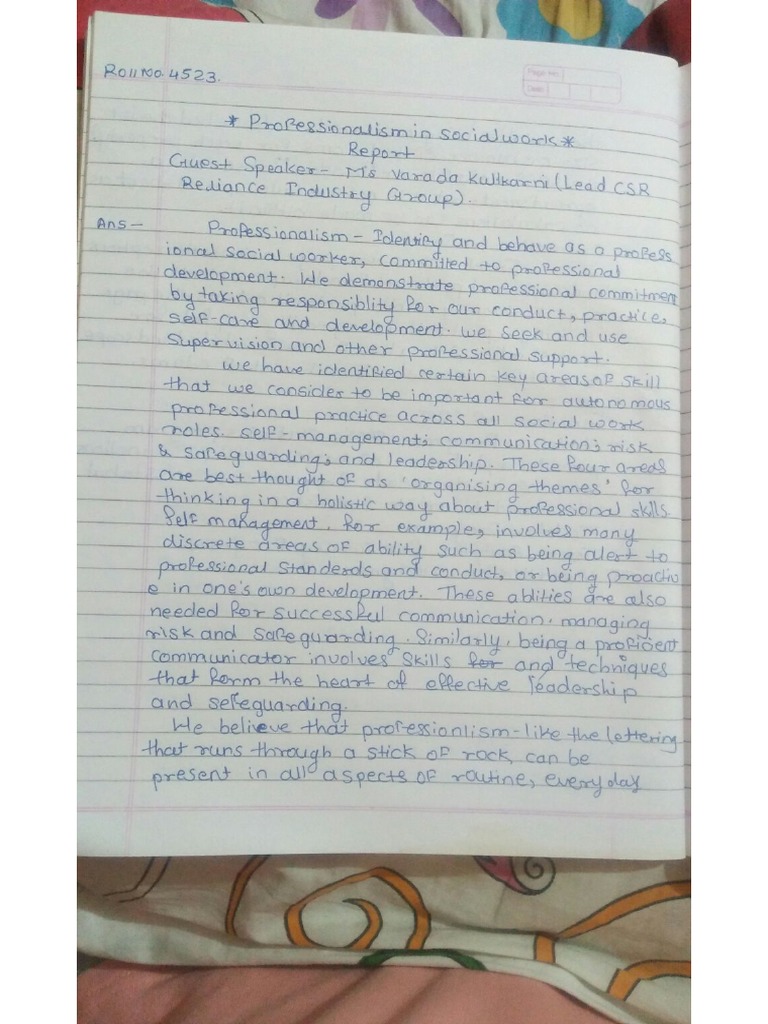 Page No.
Date
Roll No. 4523.
* Professionalism in social work *
Report
Guest Speaker - Ms Varada Kulkarni (Lead CSR
Reliance Industry Group).
Ans - Professionalism - Identify and behave as a profess
ional social worker, committed to professional
development. We demonstrate professional commitment
by taking responsiblity for our conduct, practice,
self-care and development. We seek and use
supervision and other professional support.
we have identified certain key areas of skill
that we consider to be important for autonomous
professional practice across all social work
roles. self-management; communication; risk
& safeguarding; and leadership. These four areas
are best thought of as 'organising themes' for
thinking in a holistic way about professional sklls.
Self management, for example, involves many
discrete areas of ability such as being alert to
professional standerds and conduct, or being proactiv
e in one's own development. These ablities are also
needed for successful communication, managing
risk and safeguarding. Similarly, being a proficient
communicator involves skills for and techniques
that form the heart of effective leadership
and sefeguarding.
We believe that professionlism - like the lettering
that runs through a stick of rock, can be
present in all aspects of routine, everyday